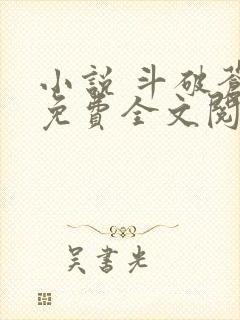 小説 斗破蒼
免費全文閱
吴書光